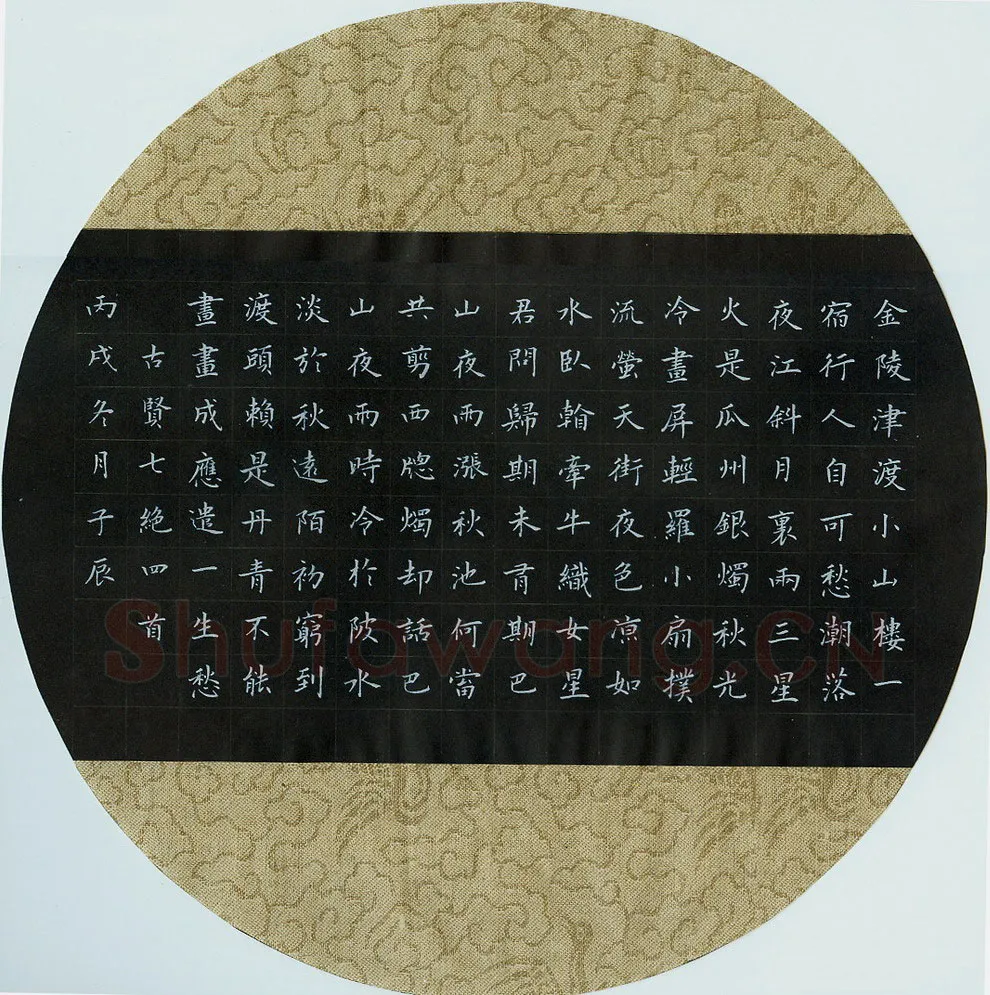 金陵津渡小山樓一
宿行人自可愁潮落
夜江斜月裏兩三星
火是瓜州銀燭秋光
冷畫屏輕羅小扇撲
流螢天街夜色涼如
水臥看牽牛織女星
君問歸期未有期巴
山夜雨漲秋池何當
共剪西牕燭却話巴
山夜雨時冷於陂水
淡於秋遠陌初窮到
渡頭賴是丹青不能
畫畫成應遣一生愁
古賢七絕四首
丙戌冬月子辰
Shufawang.CN